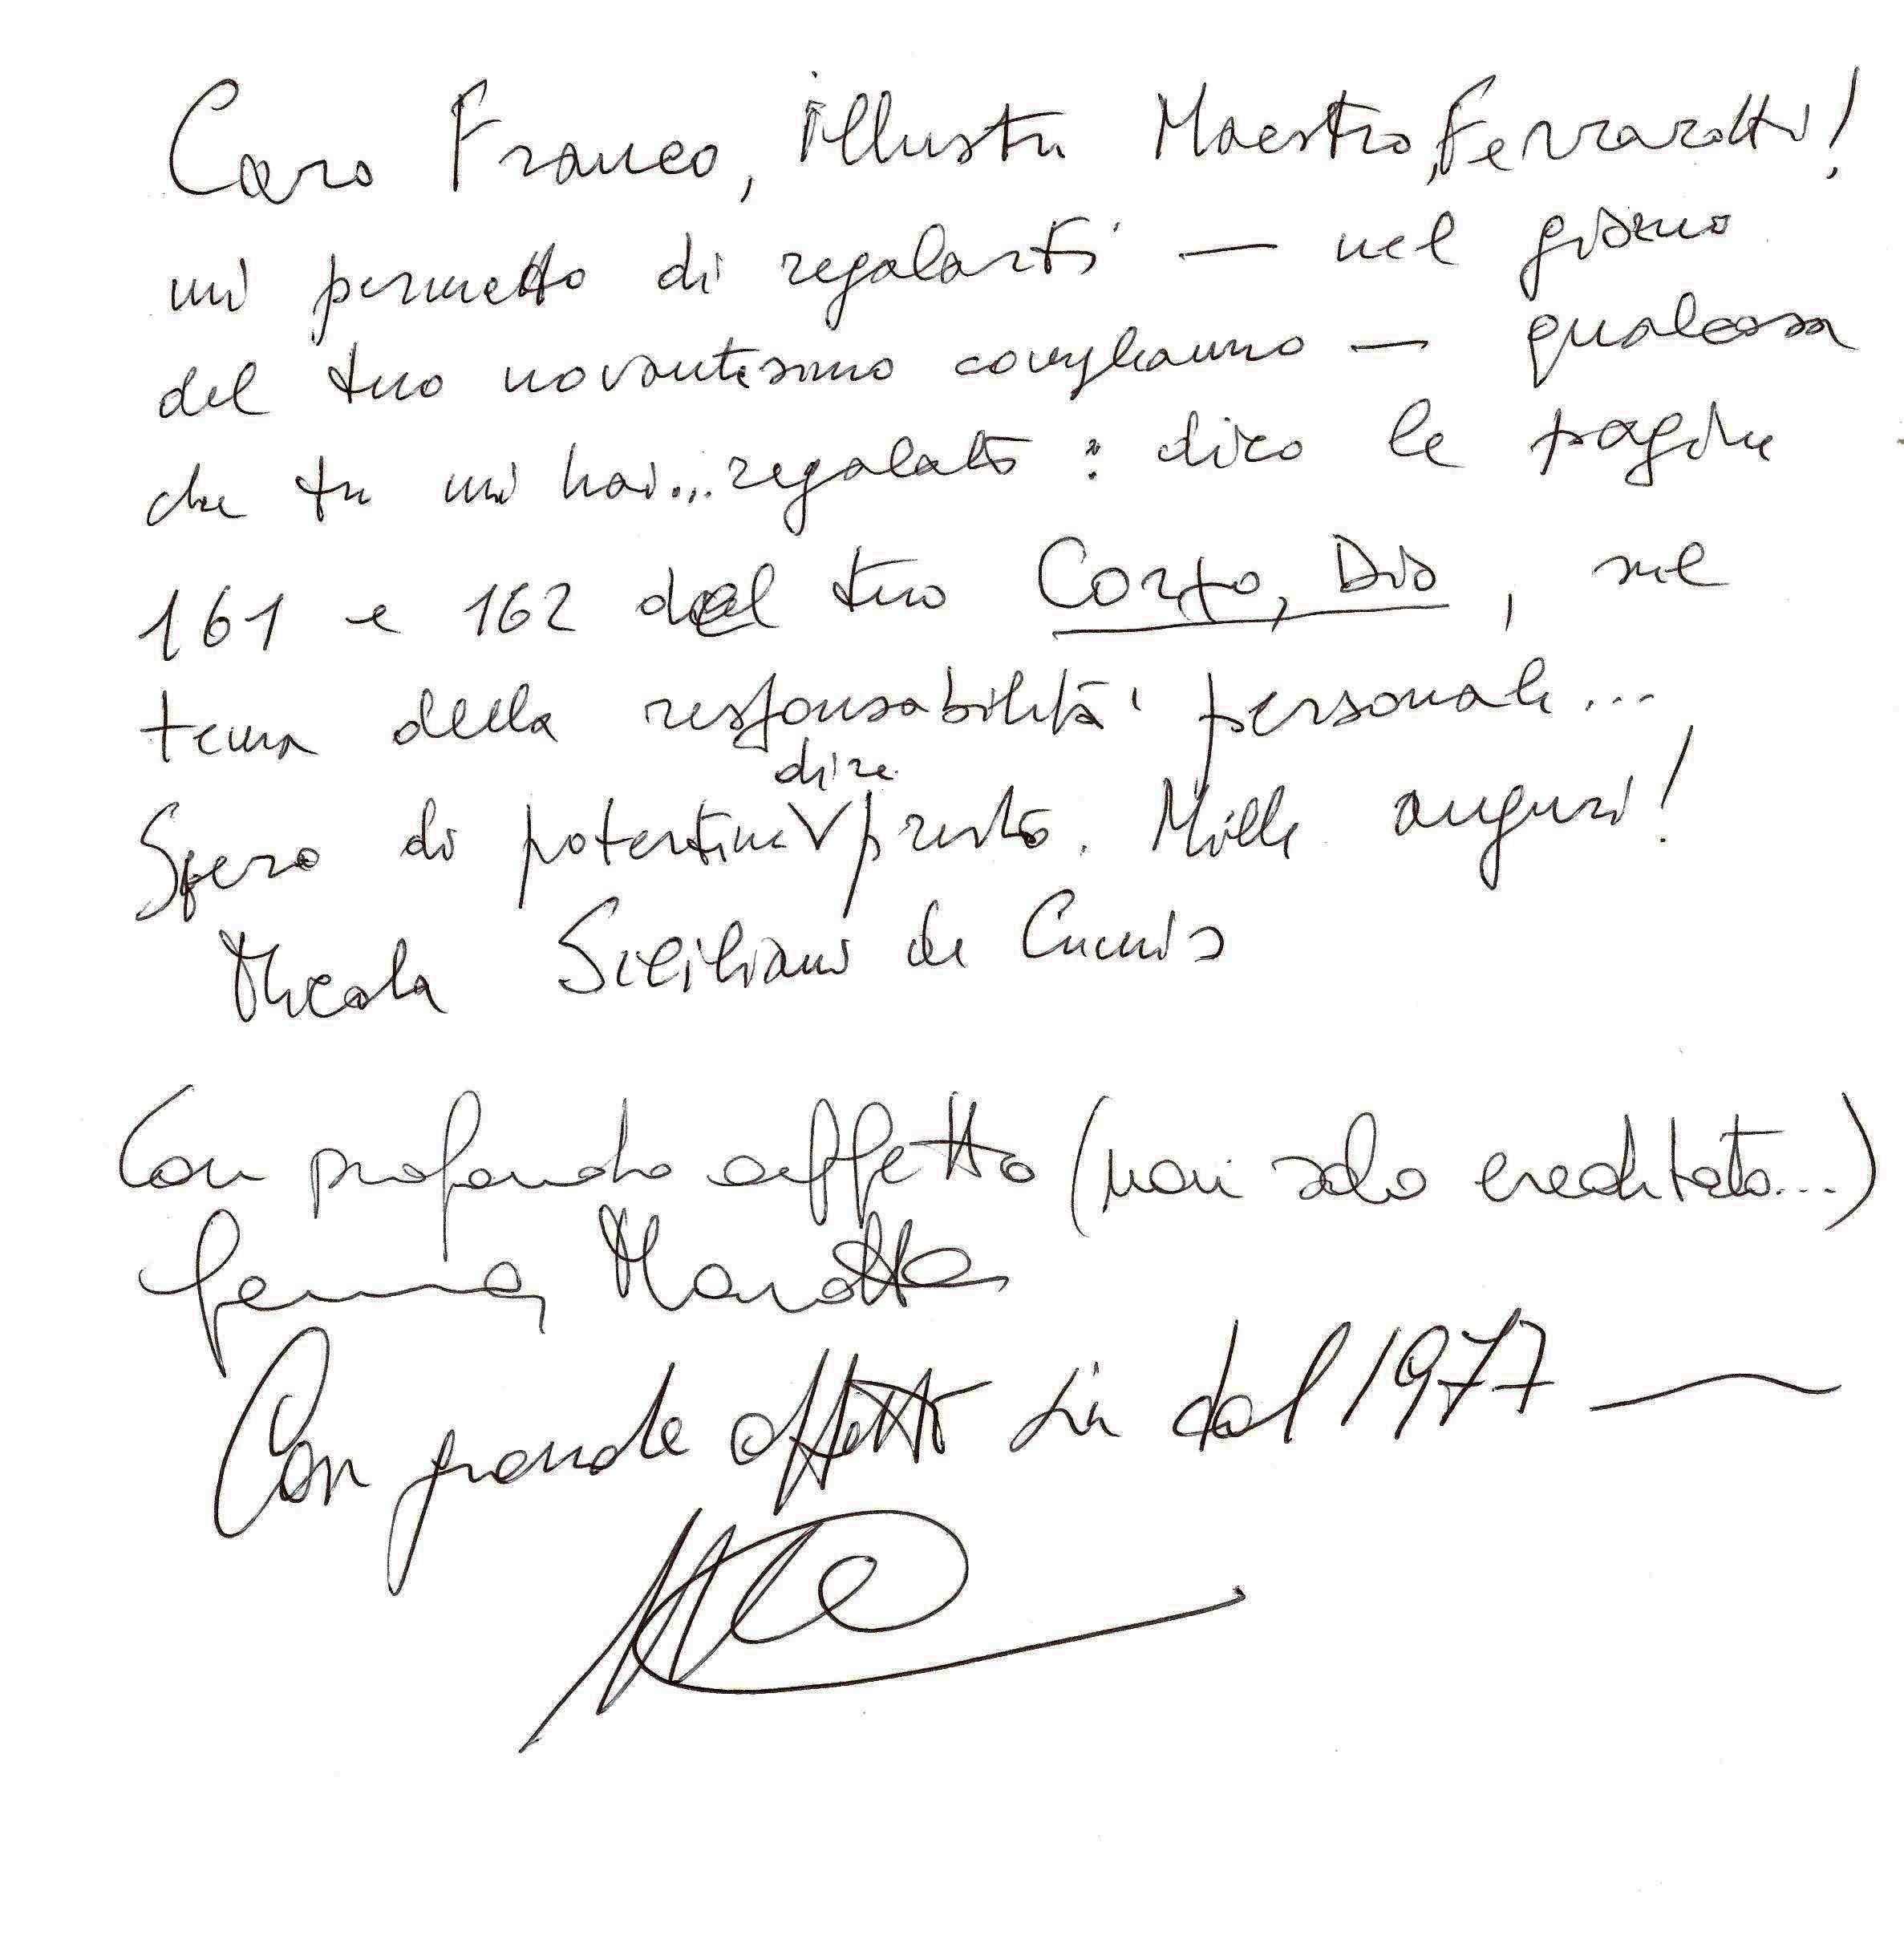 Caro Franco, illustre Maestro, Ferrarotti!
mi permetto di regalarti — nel giorno
del tuo novantesimo compleanno — qualcosa
che tu mi hai... regalato: dico le pagine
161 e 162 del tuo Corpo, Dio, sul
tema della responsabilità personale...
Spero di potertene dire presto. Mille auguri!
Nicola Siciliani de Cumis
Con profondo affetto (non solo ereditato...)
Gemma Marotta
Con grande affetto sin dal 1977